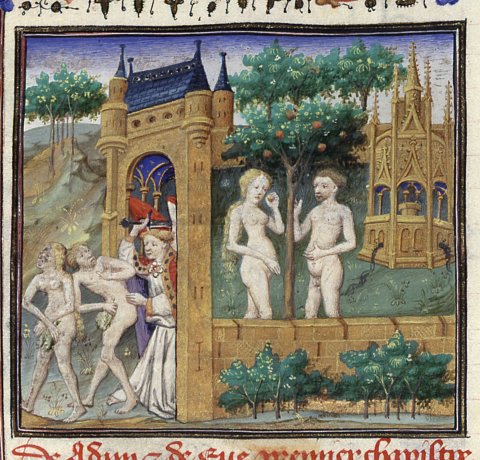 De Adam ⁊ de Eue premier chapitre